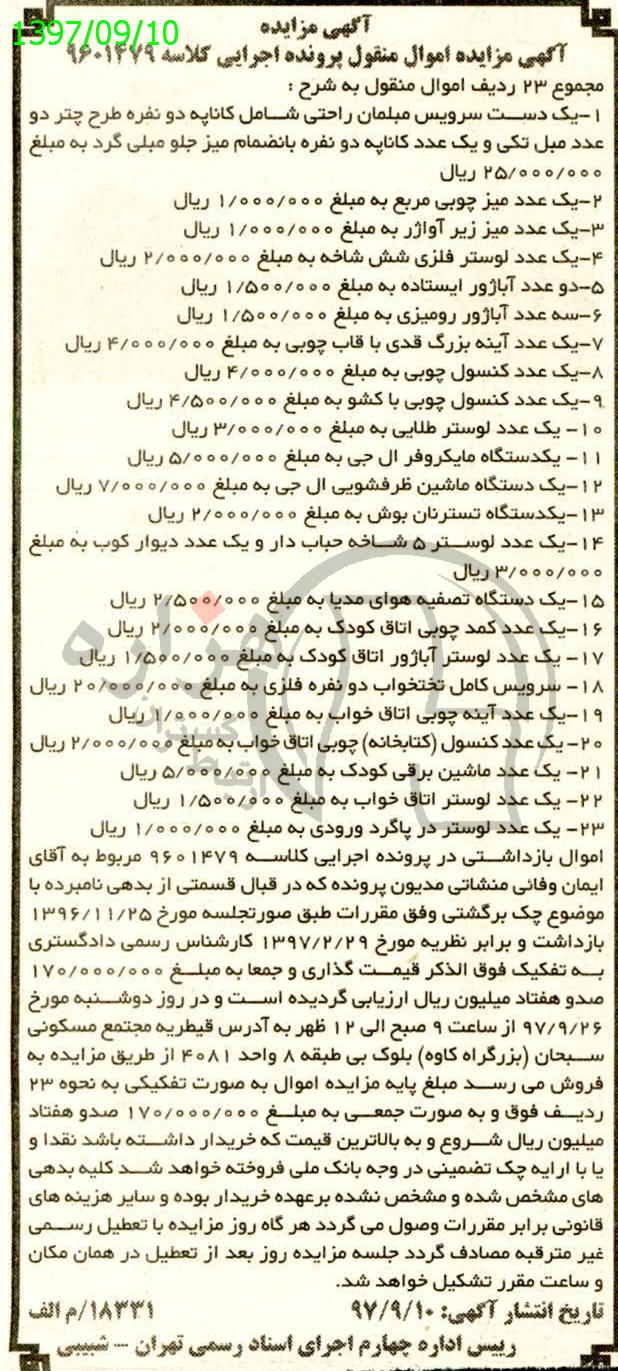 1397/09/10
آگهی مزایده
آگهی مزایده اموال منقول پرونده اجرایی کلاسه ۹۶۰۱۴۷۹
مجموع ۲۳ ردیف اموال منقول به شرح :
۱-یک دست سرویس مبلمان راحتی شامل کاناپه دو نفره طرح چتر دو
عدد مبل تکی و یک عدد کاناپه دو نفره بانضمام میز جلو مبلی گرد به مبلغ
۲۵/۰۰۰/۰۰۰ ریال
۲-یک عدد میز چوبی مربع به مبلغ ۱/۰۰۰/۰۰۰ ریال
۳-یک عدد میز زیر آواژر به مبلغ ۱/۰۰۰/۰۰۰ ریال
۴-یک عدد لوستر فلزی شش شاخه به مبلغ ۲/۰۰۰/۰۰۰ ریال
۵-دو عدد آباژور ایستاده به مبلغ ۱/۵۰۰/۰۰۰ ریال
۶-سه عدد آباژور رومیزی به مبلغ ۱/۵۰۰/۰۰۰ ریال
۷-یک عدد آینه بزرگ قدی با قاب چوبی به مبلغ ۴/۰۰۰/۰۰۰ ریال
۸-یک عدد کنسول چوبی به مبلغ ۴/۰۰۰/۰۰۰ ریال
۹-یک عدد کنسول چوبی با کشو به مبلغ ۴/۵۰۰/۰۰۰ ریال
۱۰- یک عدد لوستر طلایی به مبلغ ۳/۰۰۰/۰۰۰ ریال
۱۱- یکدستگاه مایکروفر ال جی به مبلغ ۵/۰۰۰/۰۰۰ ریال
۱۲-یک دستگاه ماشین ظرفشویی ال جی به مبلغ ۷/۰۰۰/۰۰۰ ریال
۱۳-یکدستگاه تسترنان بوش به مبلغ ۲/۰۰۰/۰۰۰ ریال
۱۴-یک عدد لوستر ۵ شاخه حباب دار و یک عدد دیوار کوب به مبلغ
۳/۰۰۰/۰۰۰ ریال
۱۵-یک دستگاه تصفیه هوای مدیا به مبلغ ۲/۵۰۰/۰۰۰ ریال
۱۶-یک عدد کمد چوبی اتاق کودک به مبلغ ۲/۰۰۰/۰۰۰ ریال
۱۷- یک عدد لوستر آباژور اتاق کودک به مبلغ ۱/۵۰۰/۰۰۰ ریال
۱۸- سرویس کامل تختخواب دو نفره فلزی به مبلغ ۲۰/۰۰۰/۰۰۰ ریال
۱۹-یک عدد آینه چوبی اتاق خواب به مبلغ ۱/۰۰۰/۰۰۰ ریال
۲۰- یک عدد کنسول (کتابخانه) چوبی اتاق خواب به مبلغ ۲/۰۰۰/۰۰۰ ریال
۲۱- یک عدد ماشین برقی کودک به مبلغ ۵/۰۰۰/۰۰۰ ریال
۲۲- یک عدد لوستر اتاق خواب به مبلغ ۱/۵۰۰/۰۰۰ ریال
۲۳- یک عدد لوستر در پاگرد ورودی به مبلغ ۱/۰۰۰/۰۰۰ ریال
اموال بازداشتی در پرونده اجرایی کلاسه ۹۶۰۱۴۷۹ مربوط به آقای
ایمان وفائی منشاتی مدیون پرونده که در قبال قسمتی از بدهی نامبرده با
موضوع چک برگشتی وفق مقررات طبق صورتجلسه مورخ ۱۳۹۶/۱۱/۲۵
بازداشت و برابر نظریه مورخ ۱۳۹۷/۲/۲۹ کارشناس رسمی دادگستری
به تفکیک فوق الذکر قیمت گذاری و جمعا به مبلغ ۱۷۰/۰۰۰/۰۰۰
صدو هفتاد میلیون ریال ارزیابی گردیده است و در روز دوشنبه مورخ
۹۷/۹/۲۶ از ساعت ۹ صبح الی ۱۲ ظهر به آدرس قیطریه مجتمع مسکونی
سبحان (بزرگراه کاوه) بلوک بی طبقه ۸ واحد ۴۰۸۱ از طریق مزایده به
فروش می رسد مبلغ پایه مزایده اموال به صورت تفکیکی به نحوه ۲۳
ردیف فوق و به صورت جمعی به مبلغ ۱۷۰/۰۰۰/۰۰۰ صدو هفتاد
میلیون ریال شروع و به بالاترین قیمت که خریدار داشته باشد نقدا و
یا با ارایه چک تضمینی در وجه بانک ملی فروخته خواهد شد کلیه بدهی
های مشخص شده و مشخص نشده برعهده خریدار بوده و سایر هزینه های
قانونی برابر مقررات وصول می گردد هر گاه روز مزایده با تعطیل رسمی
غیر مترقبه مصادف گردد جلسه مزایده روز بعد از تعطیل در همان مکان
و ساعت مقرر تشکیل خواهد شد.
تاریخ انتشار آگهی: ۹۷/۹/۱۰ ۱۸۳۳۱/م الف
رییس اداره چهارم اجرای اسناد رسمی تهران - شبیبی